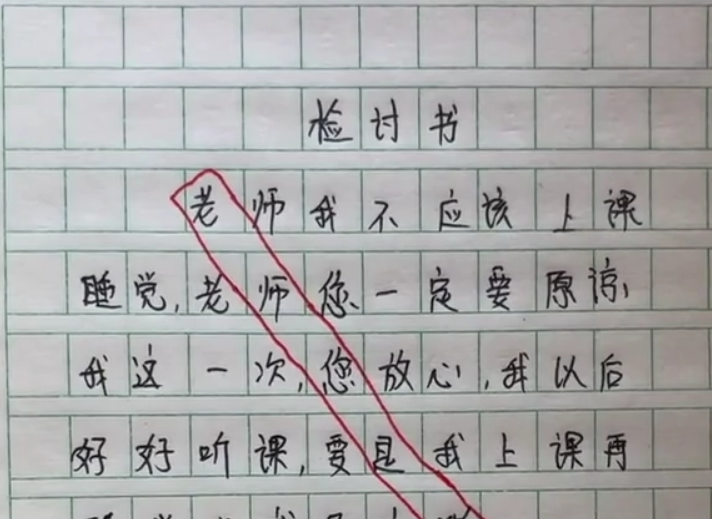 检讨书
老师我不应该上课
睡觉,老师您一定要原谅
我这一次,您放心,我以后
好好听课,要是我上课再